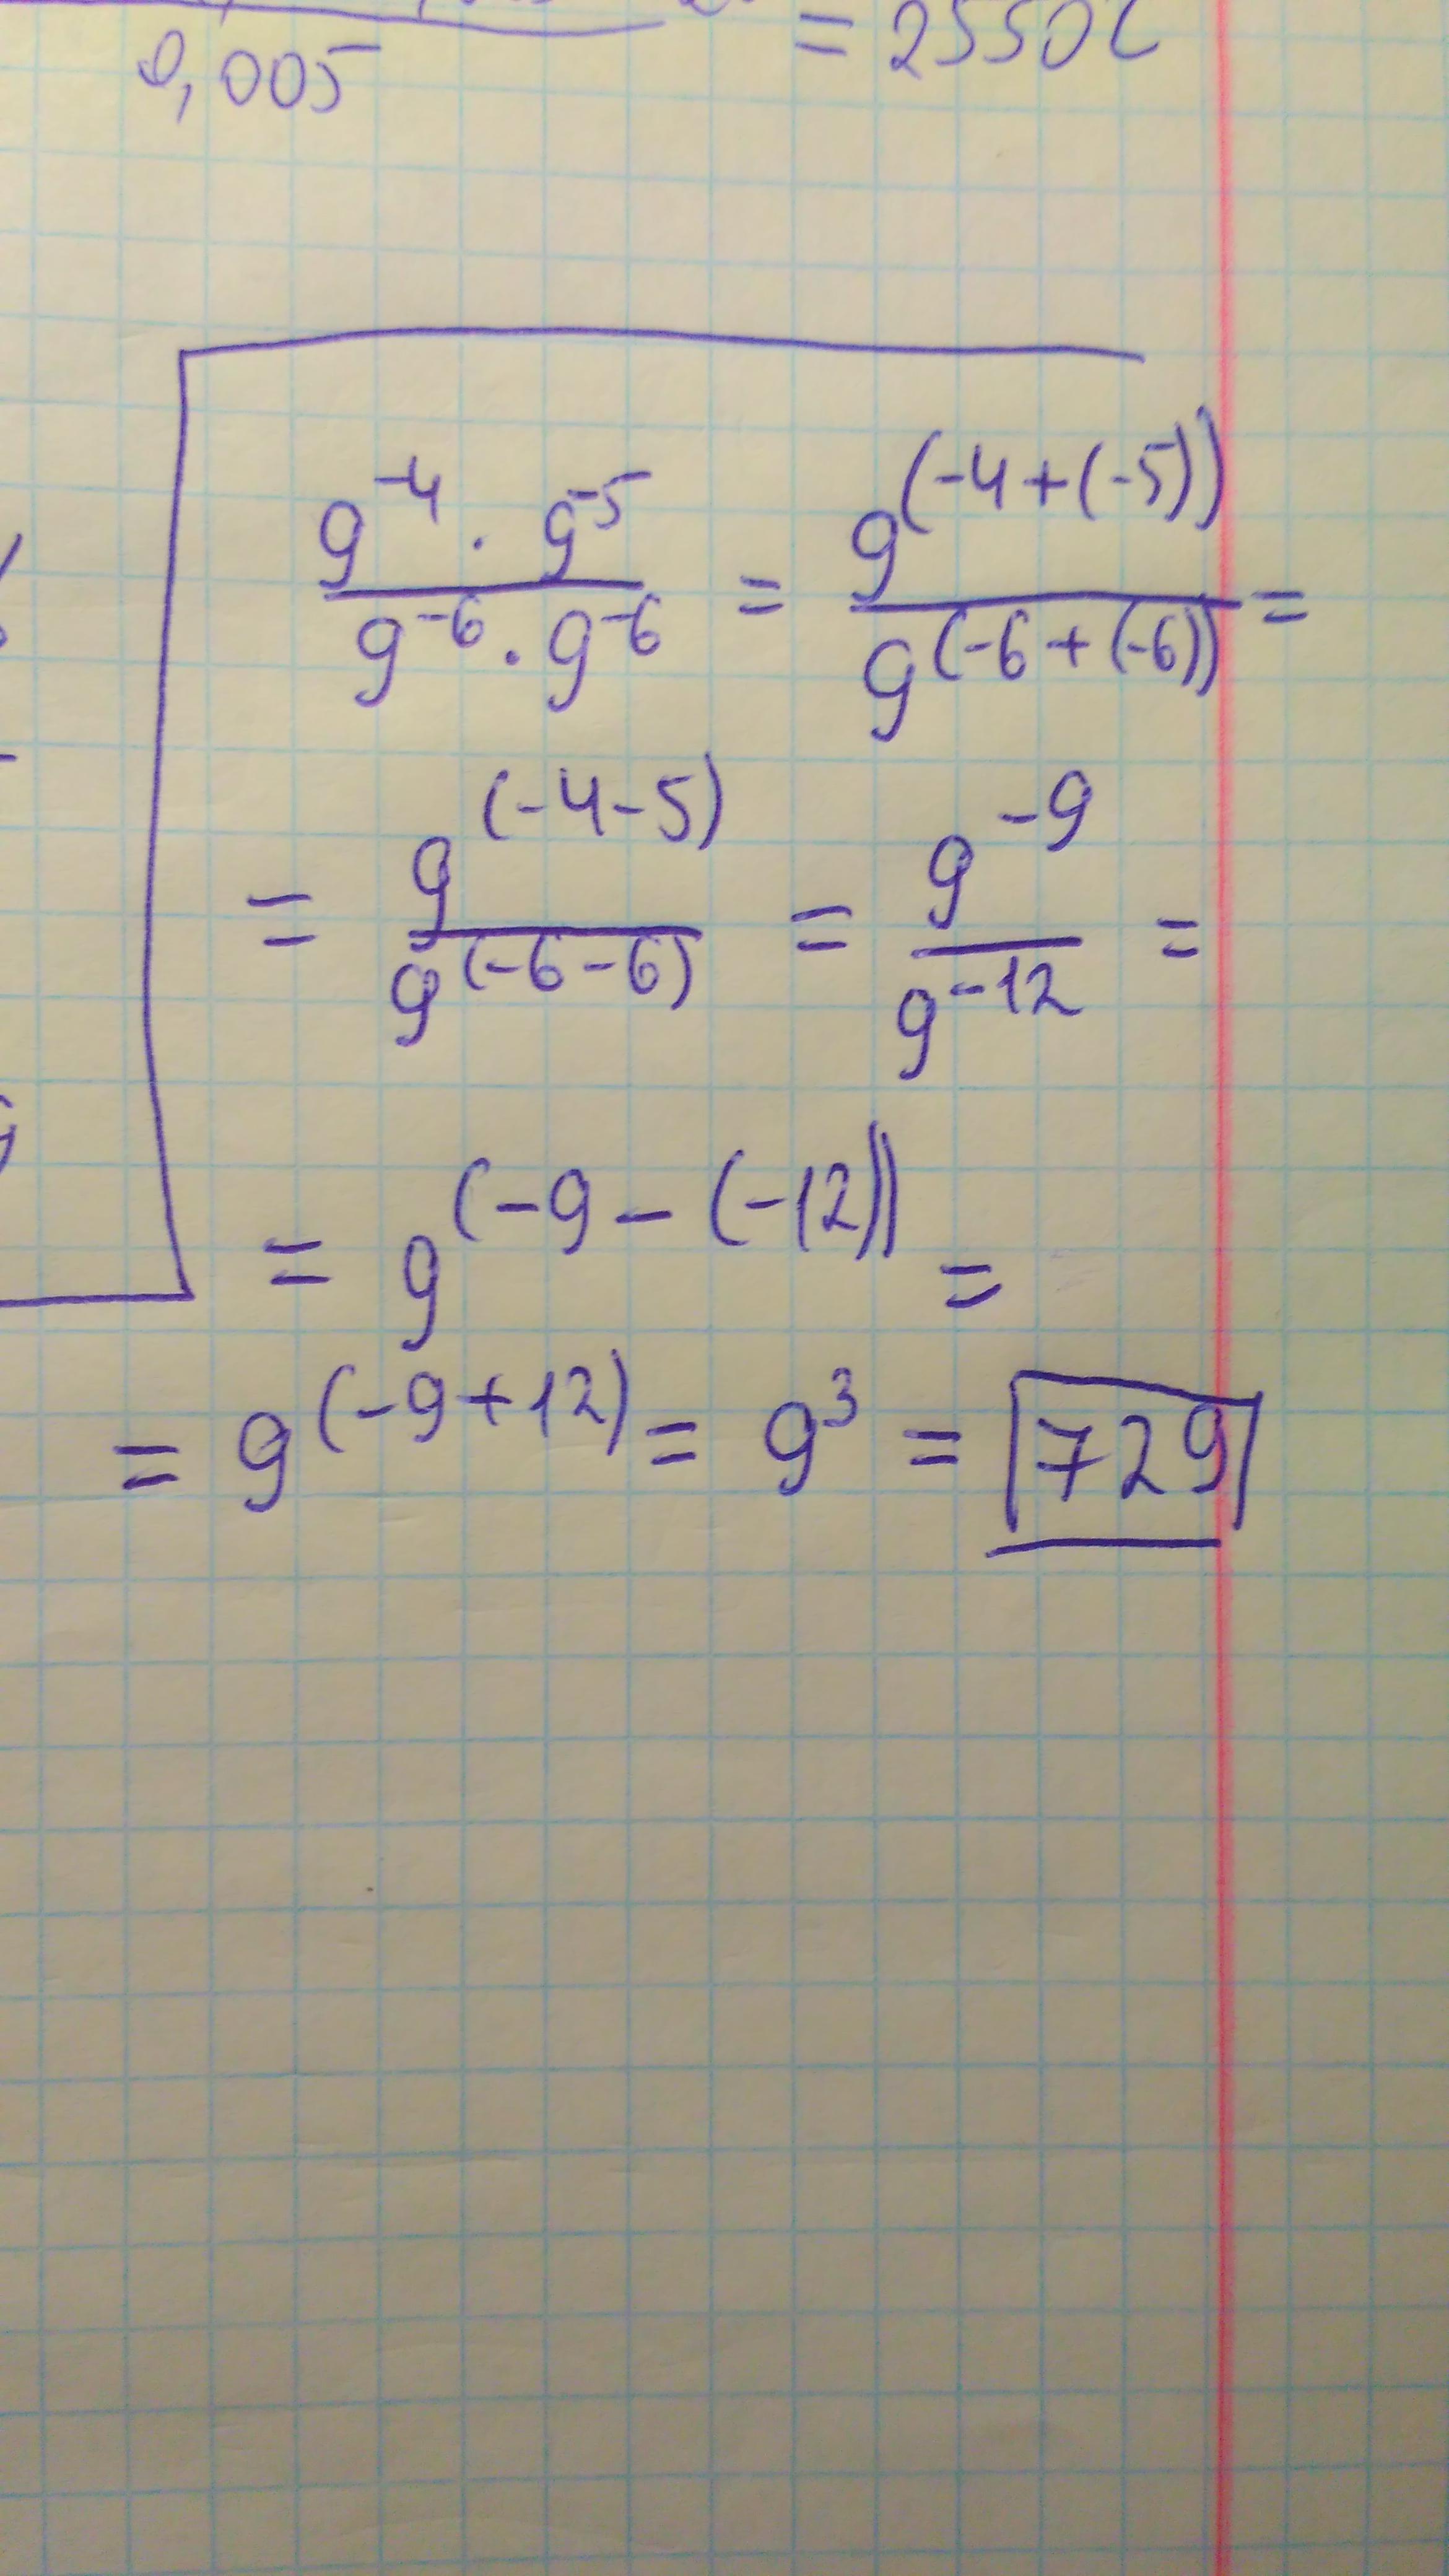 0,005 = 2550
9^-4 · 9^-5 / 9^-6 · 9^-6 = 9^(-4+(-5)) / 9^(-6+(-6)) =
= 9^(-4-5) / 9^(-6-6) = 9^-9 / 9^-12 =
= 9^(-9-(-12)) =
= 9^(-9+12) = 9^3 = 729